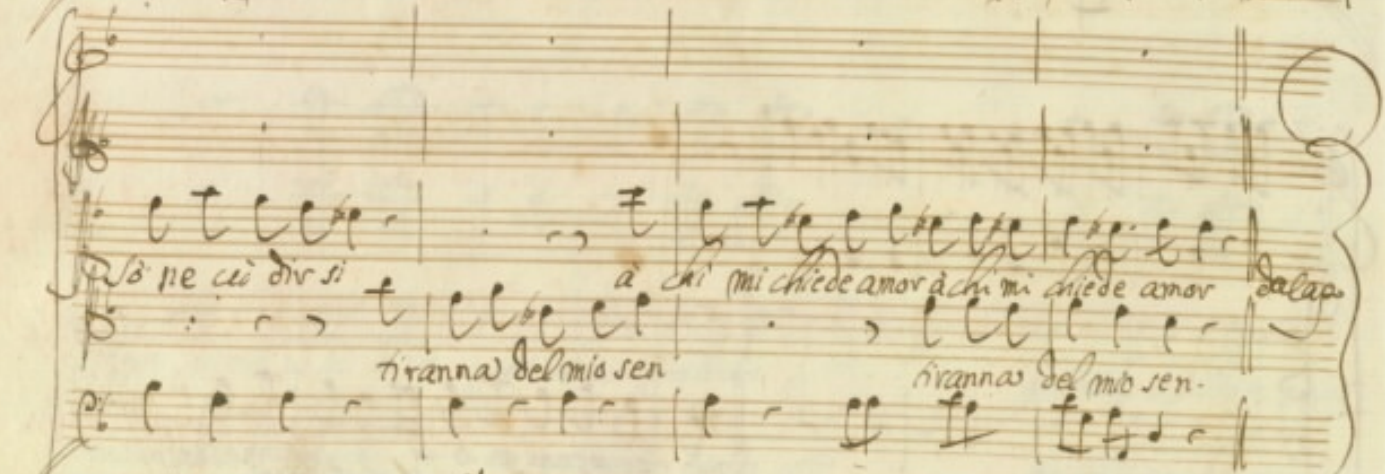 Sò ne cuì dir si à chi mi chiede amor à chi mi chiede amor da capo
tiranna del mio sen tiranna del mio sen.